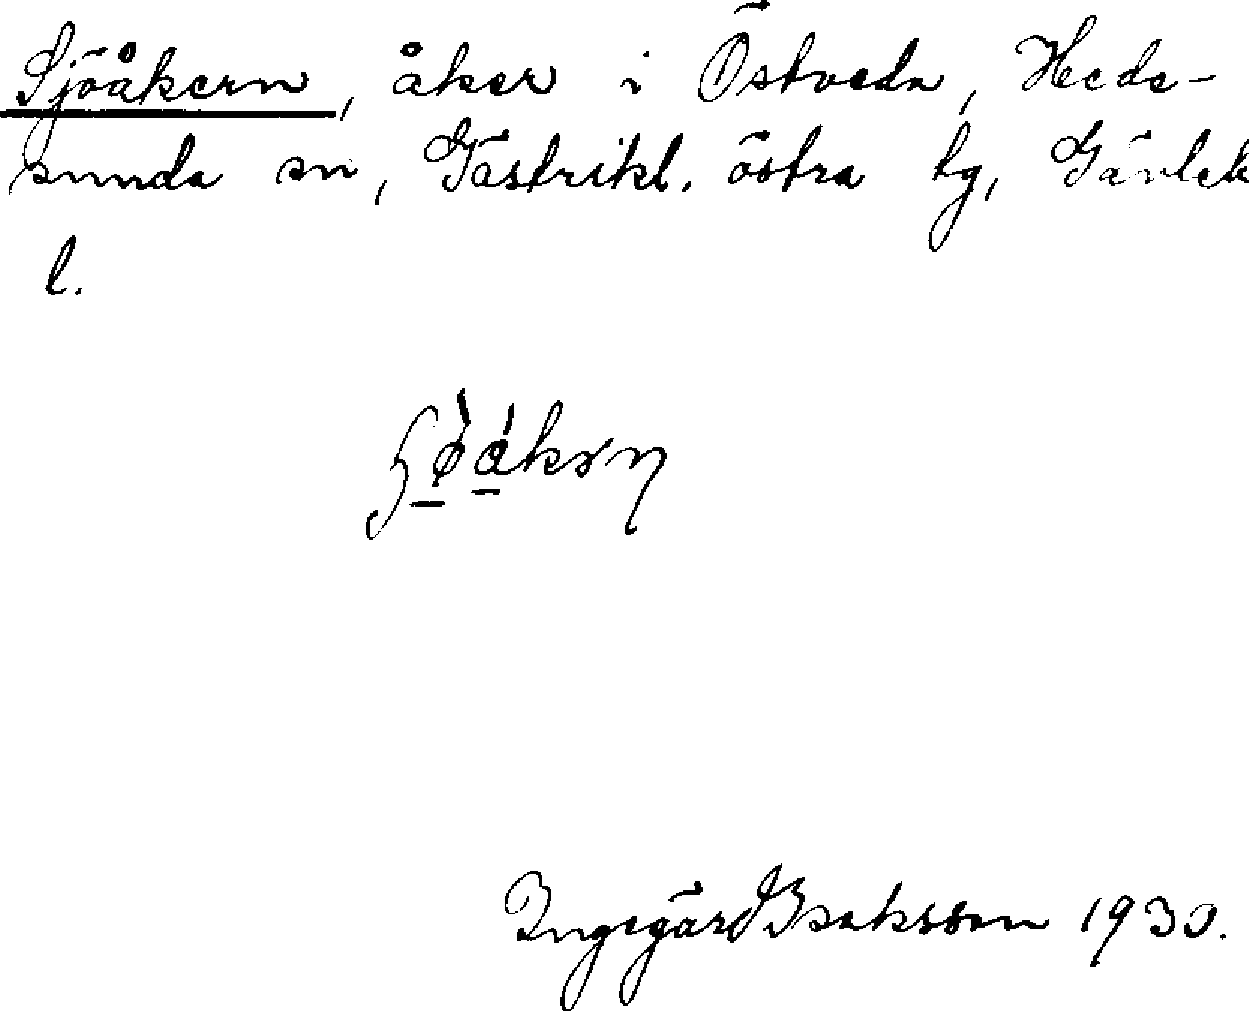 Sjöåkern, åker i Östveda, Hede-
sunda sn, Gästrikl. östra tg, Gävleb
l.
Ingegärd Isaksson 1930.